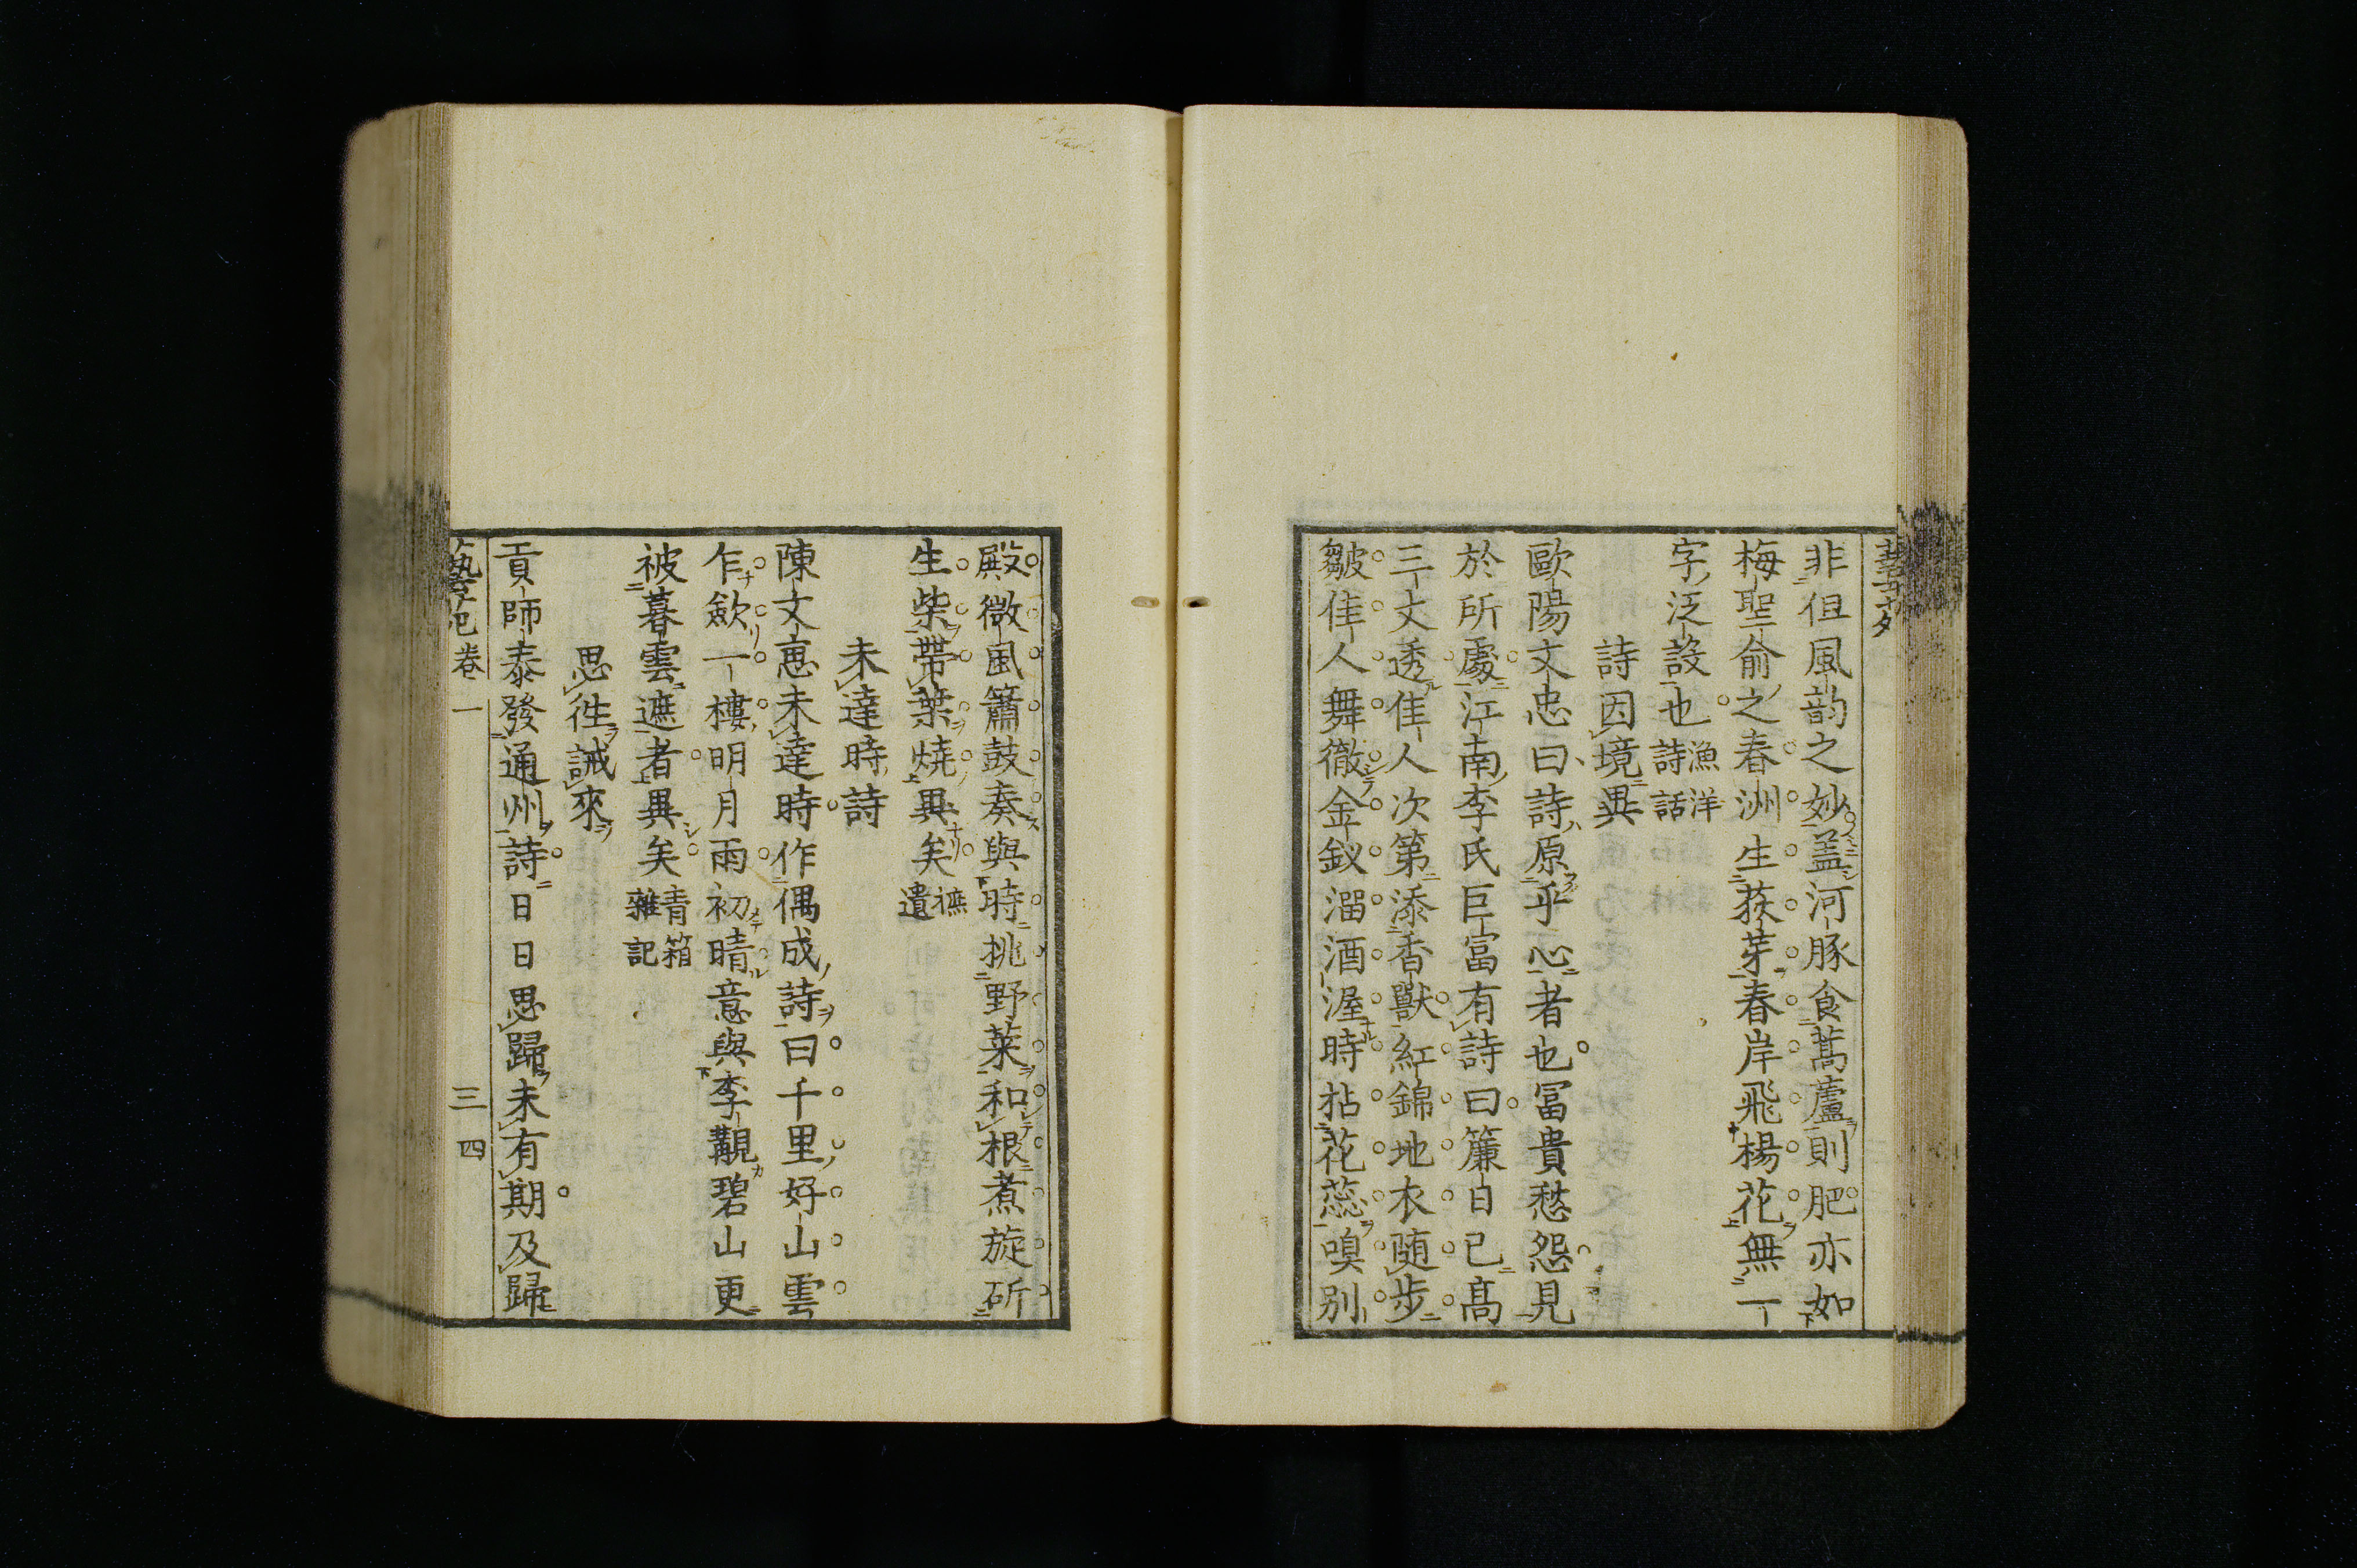 非但風韵之妙盖河豚食蒿蘆則肥亦如
梅聖俞之春洲生荻芽春岸飛楊花無一
字泛設也漁洋詩話
詩因境異
歐陽文忠曰詩原乎心者也冨貴愁怨見
於所處江南李氏巨富有詩曰簾日已髙
三丈透佳人次第添香獸紅錦地衣随步
皺佳人舞徹金釵溜酒渥時拈花蕊嗅别
殿微風簫鼓奏與時挑野菜和根煮旋斫
生柴帶葉燒異矣摭遺
未達時詩
陳文惠未達時作偶成詩曰千里好山雲
乍歛一樓明月雨初晴意與李覯碧山更
被暮雲遮者異矣青箱雜記
思徃誡來
貢師泰發通州詩日日思歸未有期及歸
藝苑卷一
三四